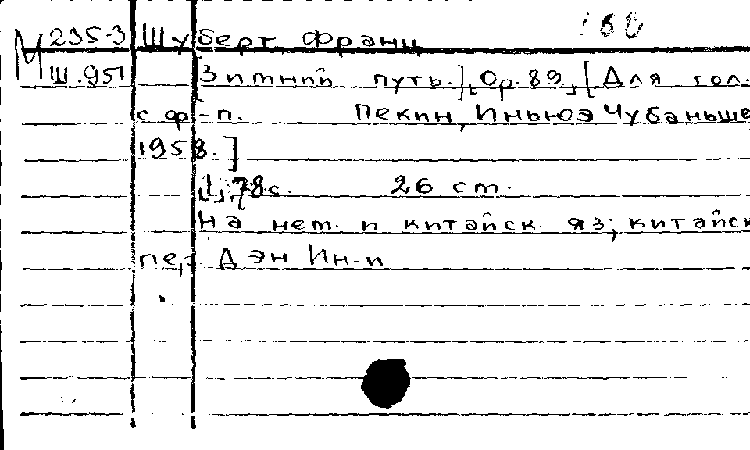 М 235-3 Шуберт Франц
Ш.951 [Зимний путь.], Ор.89, [Для гол.
с ф-п. Пекин, Иньюэ Чубаньше
1958.]
78с. 26 см.
На нем. и китайск яз; китайск
пер. Дэн Ин-и